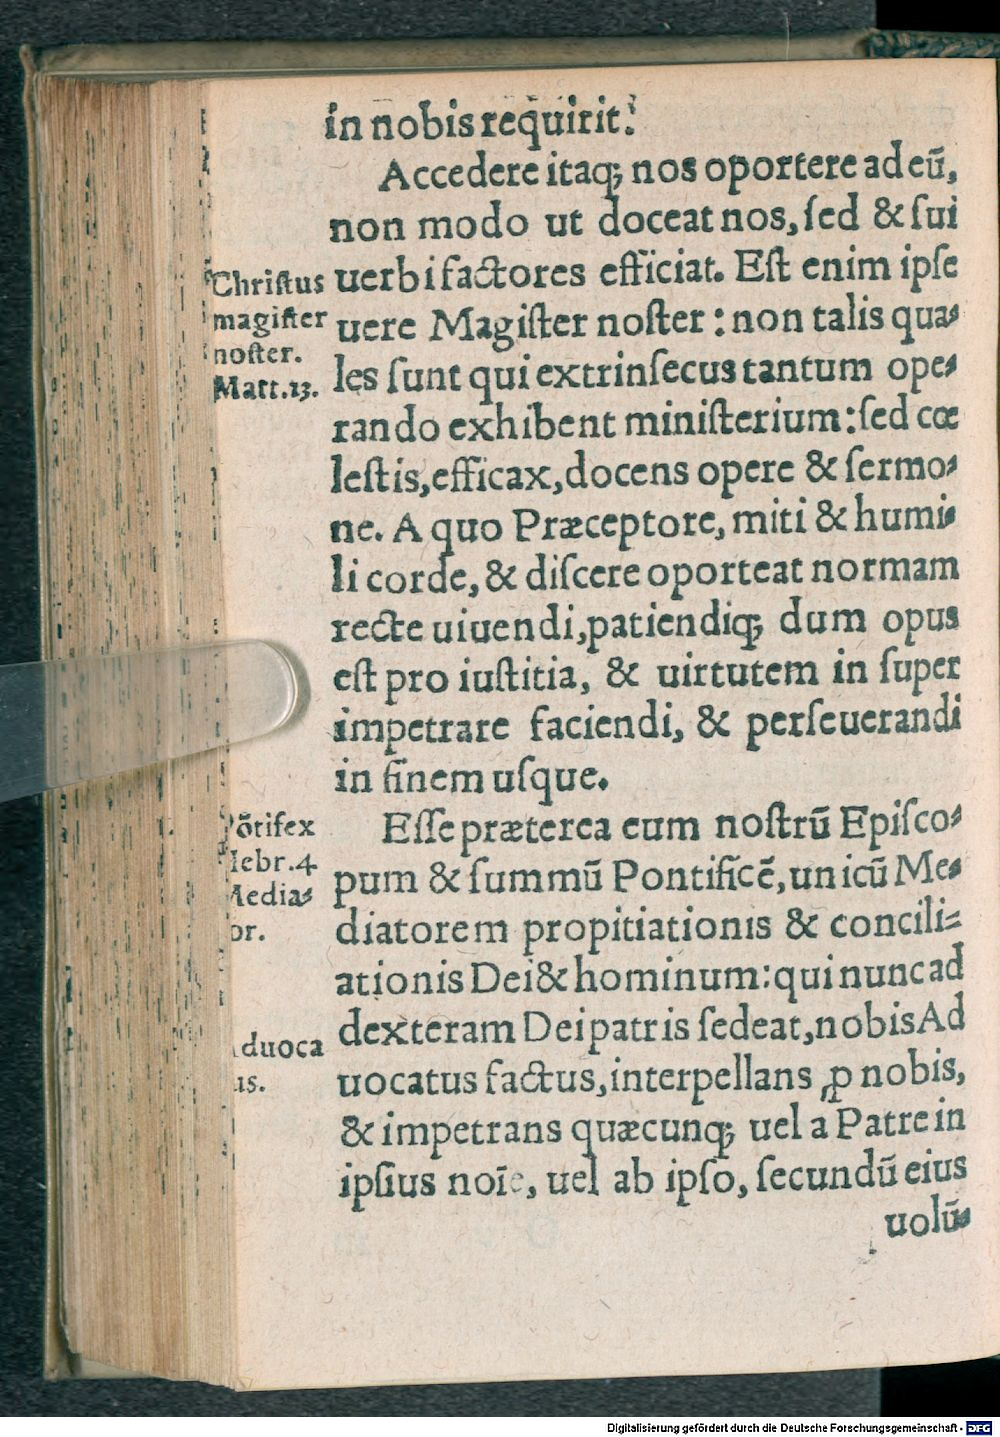 in nobis requirit.
Accedere itaq; nos oportere ad eū,
non modo ut doceat nos, ſed & ſui
uerbi factores efficiat. Eſt enim ipſe
uere Magiſter noſter : non talis qua⸗
les ſunt qui extrinſecus tantum ope⸗
rando exhibent miniſterium: ſed cœ
leſtis, efficax, docens opere & ſermo⸗
ne. A quo Præceptore, miti & humi⸗
li corde, & diſcere oporteat normam
recte uiuendi, patiendiq; dum opus
eſt pro iuſtitia, & uirtutem in ſuper
impetrare faciendi, & perſeuerandi
in finem uſque.
Eſſe præterea eum noſtrū Epiſco⸗
pum & ſummū Pontificē, unicū Me⸗
diatorem propitiationis & concili⸗
ationis Dei & hominum: qui nunc ad
dexteram Dei patris ſedeat, nobis Ad
uocatus factus, interpellans ꝓ nobis,
& impetrans quæcunq; uel a Patre in
ipſius noīe, uel ab ipſo, ſecundū eius
uolū⸗
Chriſtus
magiſter
noſter.
Matt.13.
Pōtifex
Hebr.4
Media⸗
or.
duoca
us.
Digitalisierung gefördert durch die Deutsche Forschungsgemeinschaft - DFG